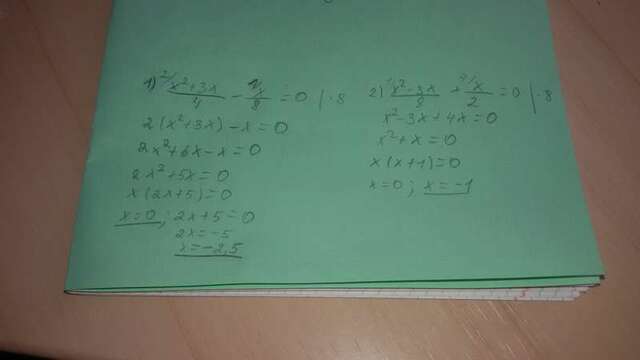 1) 2/ x²+3x / 4 - 1/ x / 8 = 0 | ·8
2(x²+3x) - x = 0
2x²+6x-x=0
2x²+5x=0
x(2x+5)=0
x=0; 2x+5=0
2x=-5
x=-2,5
2) 1/ x²-3x / 8 + 4/ x / 2 = 0 | ·8
x²-3x+4x=0
x²+x=0
x(x+1)=0
x=0; x=-1